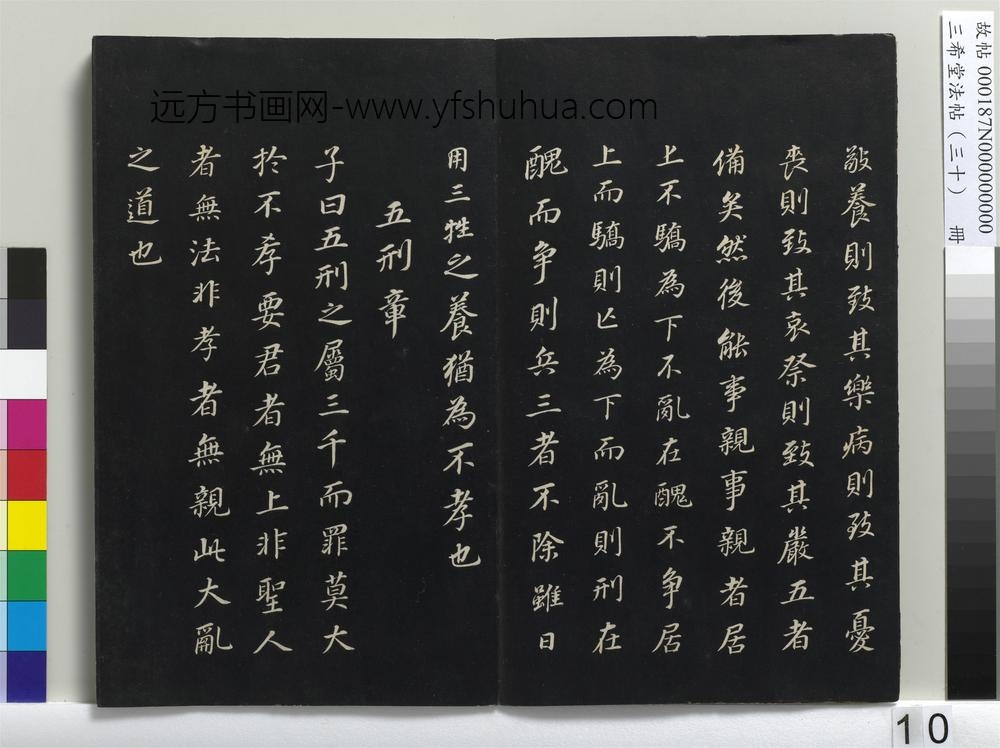 敬養則致其樂病則致其憂
喪則致其哀祭則致其嚴五者
備矣然後能事親事親者居
上不驕為下不亂在醜不争居
上而驕則亡為下而亂則刑在
醜而争則兵三者不除雖日
用三牲之養猶為不孝也
五刑章
子曰五刑之屬三千而罪莫大
於不孝要君者無上非聖人
者無法非孝者無親此大亂
之道也
远方书画网-www.yfshuhua.com
故帖 000187N000000000
三希堂法帖（三十） 冊
10